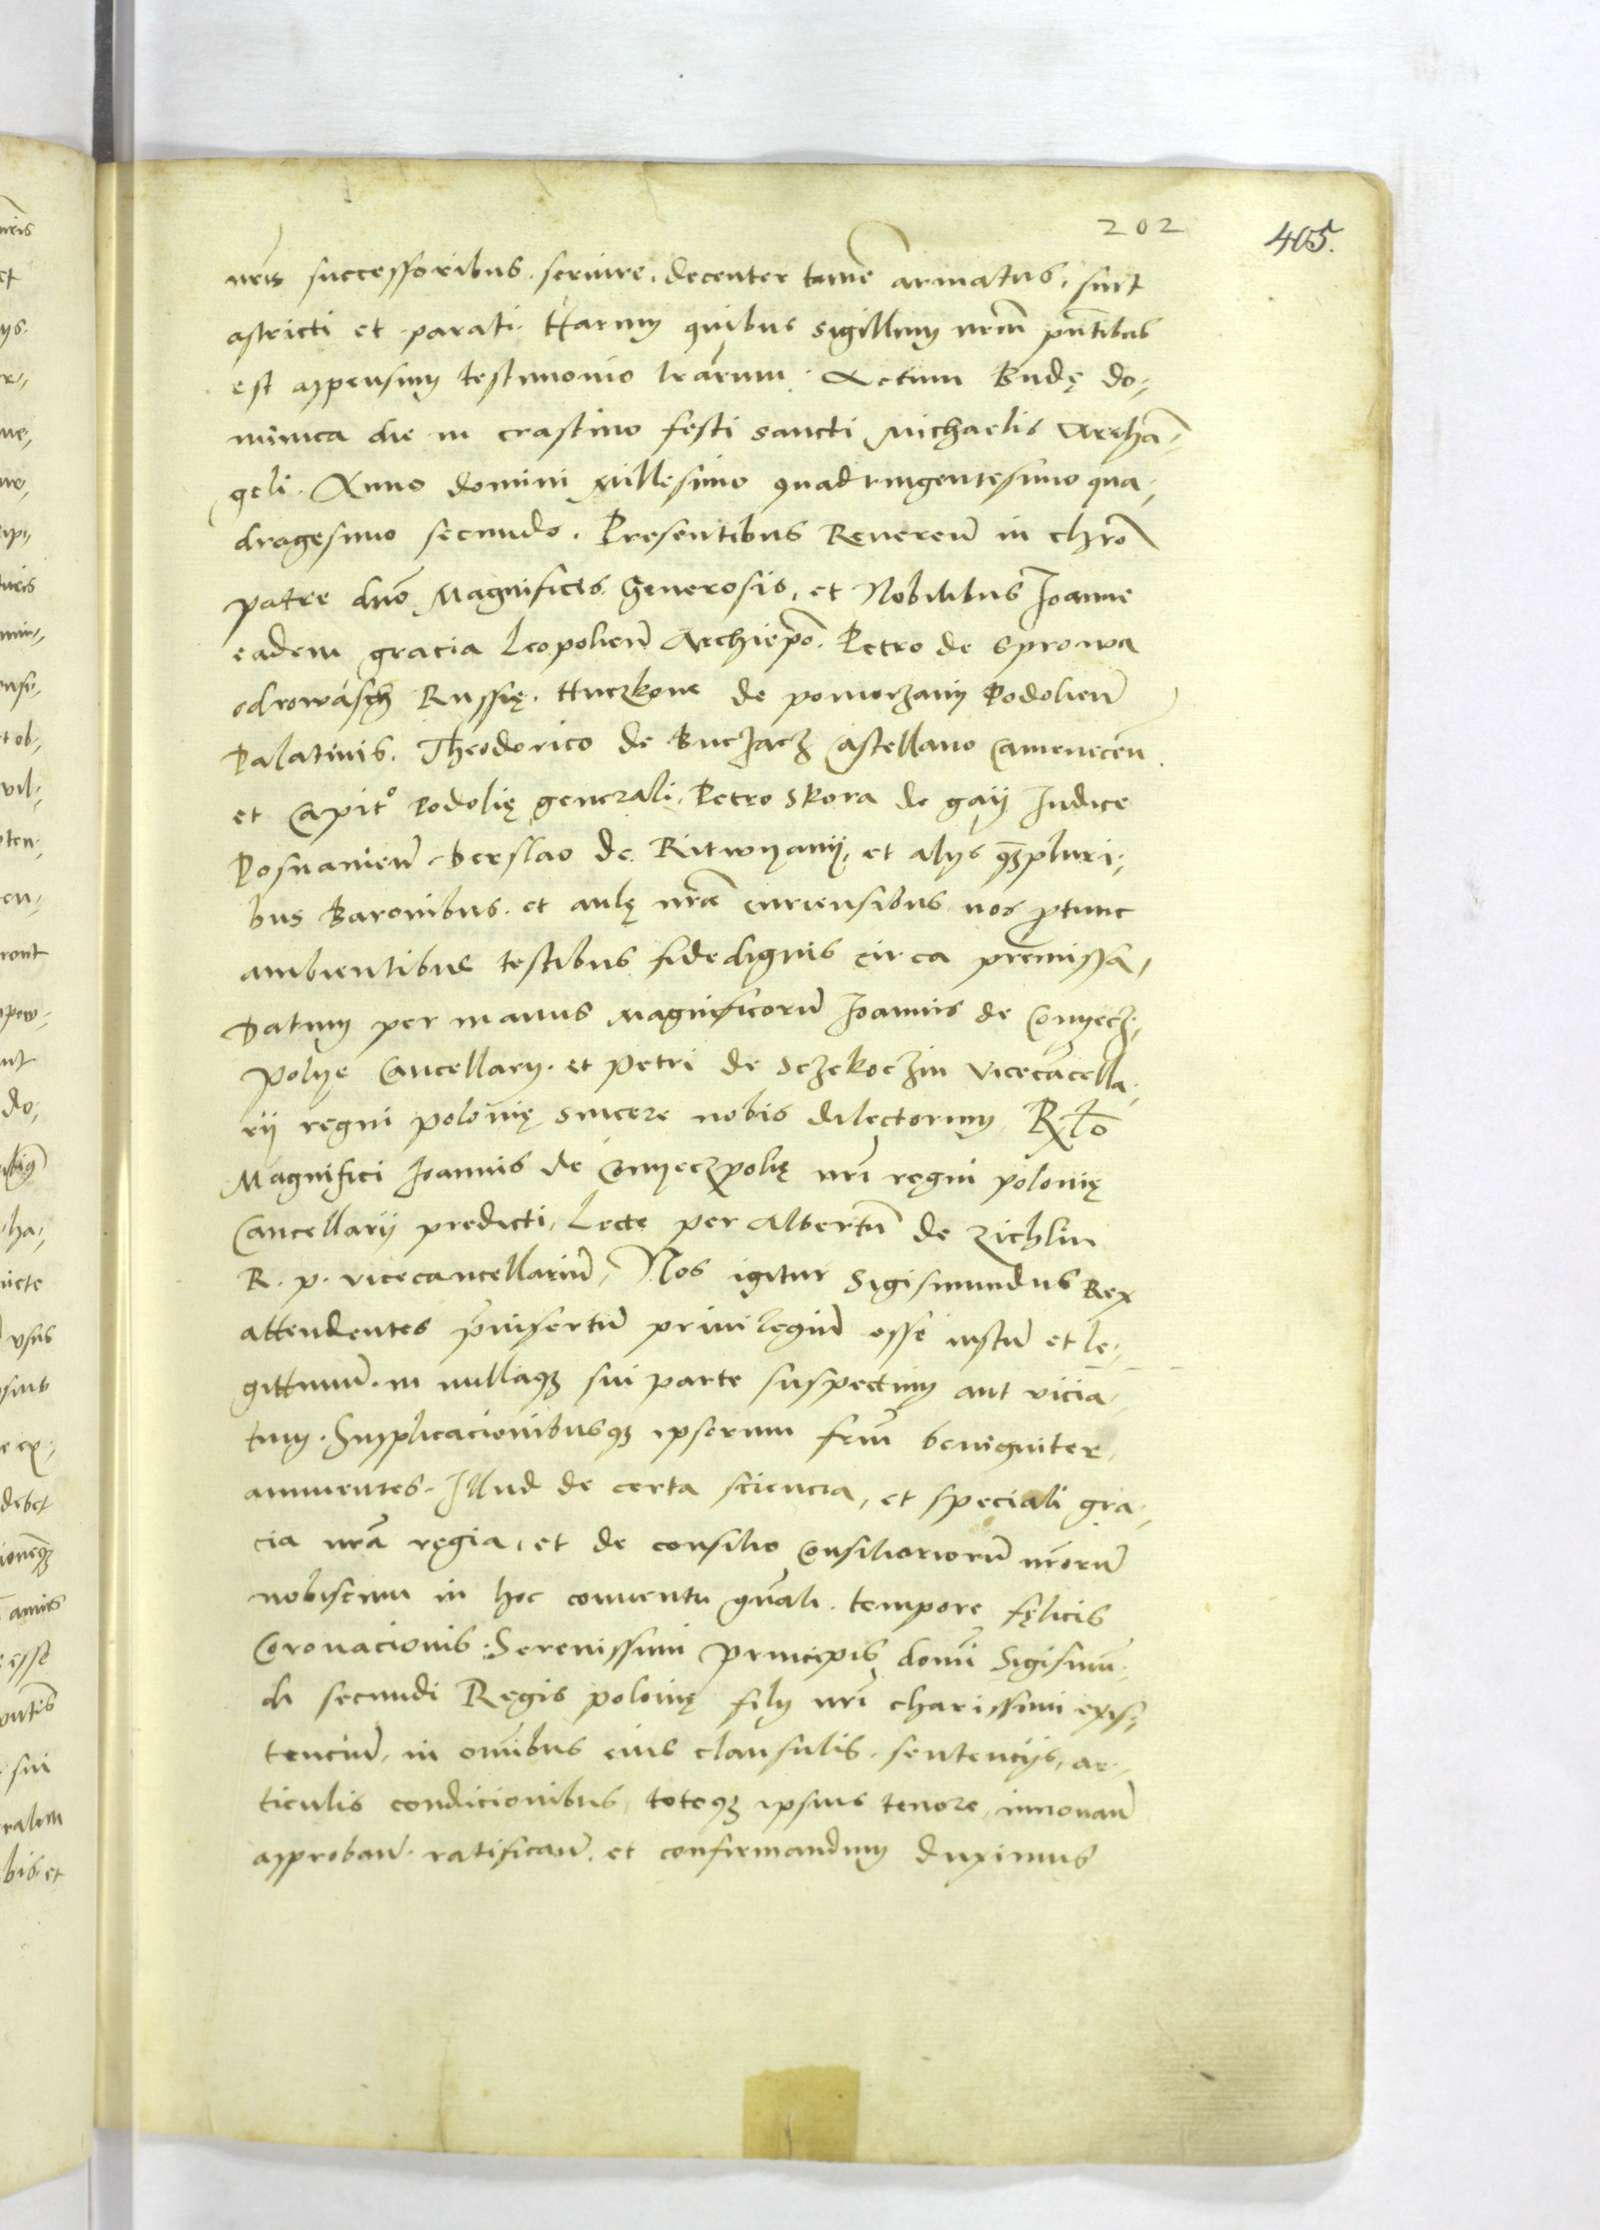 202
405.
nr̃is successoribus seruire, decenter tamẽ armatus, sint
astricti et parati. Harum quibus sigillum nr̃um pñtibus
est appensum testimonio lrãrum. Actum Budę do-
minica die in crastino festi sancti Michaelis Archã-
geli. Anno domini Millesimo quadringentesimo qua-
dragesimo secundo. Presentibus Reueren̄ in chrõ
patre dño Magnificis Generosis, et Nobilibus Joanne
eadem gracia Leopolien̄ Archiep̃o. Petro de Sprowa
odrowasch Russię. Huczkone de pomorzany Podolien̄
Palatinis. Theodorico de Buczacz Castellano Camenecen̄
et Capit° Podolię generali, Petro Skora de gaij Judice
Posnanien̄ Derslao de Ritwyanij, et alijs q̃ʒpluri-
bus Baronibus. et aulę nr̃ae curiensibus nos ꝓtunc
ambientibus testibus fidedignis circa premissa,
Datum per manus Magnificorũ Joannis de Conyecz-
polye Cancellarij. et Petri de Sczekoczin vicecãcella-
rij regni polonię sincere nobis dilectorum R̃tõ
Magnifici Joannis de Conyeczpolię nr̃i regni polonię
Cancellarij predicti, Lecte per Albertũ de Zichlin
R. p. vicecancellariũ, Nos igitur Sigismundus Rex
attendentes p̃insertũ priuilegiũ esse iustũ et le-
gittimũ. in nullaqʒ sui parte suspectum aut vicia-
tum. Supplicacionibusqʒ ipsorum frm̃ benigniter
annuentes. Illud de certa sciencia, et speciali gra-
cia nr̃a regia, et de consilio Consiliariorũ nr̃orũ
nobiscum in hoc conuentu gñali. tempore fęlicis
Coronacionis. Serenissimi principis domi͂ Sigismũ-
di secundi Regis polonię filij nr̃i charissimi exis-
tenciũ, in om̃ibus eius clausulis. sentencijs, ar-
ticulis condicionibus, totoqʒ ipsius tenore, innouan̄
approban̄. ratifican̄. et confirmandum duximus